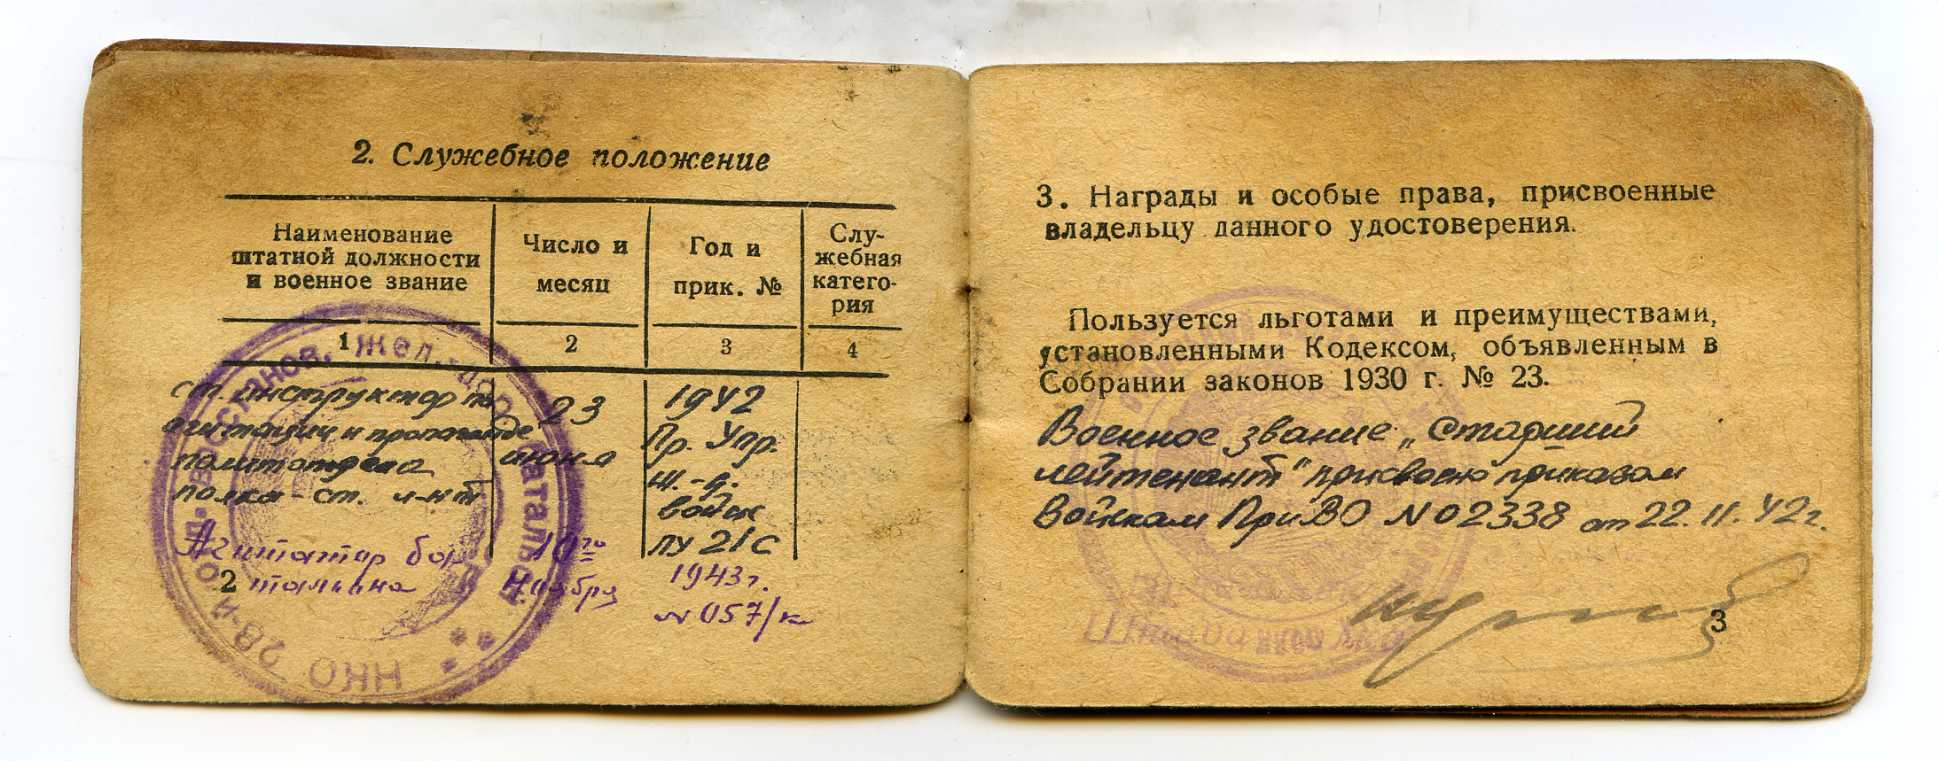 2. Служебное положение
Наименование штатной должности и военное звание
Число и месяц
Год и прик. №
Служебная категория
1 2 3 4
ст. инструктор по
агитации и пропаганде
политотдела
полка - ст. л-нт
23
июня
1942
Пр. Упр.
ж.-д.
войск
ЛУ 21с
Агитатор ба
тальона
10го
Ноября
1943г.
№ 057/к
2
НКО 28-й
восстанов. жел.-дор. батальон
3. Награды и особые права, присвоенные
владельцу данного удостоверения.
Пользуется льготами и преимуществами,
установленными Кодексом, объявленным в
Собрании законов 1930 г. № 23.
Военное звание „Старший
лейтенант" присвоено приказом
Войскам ПриВО №02338 от 22.11.42г.
3